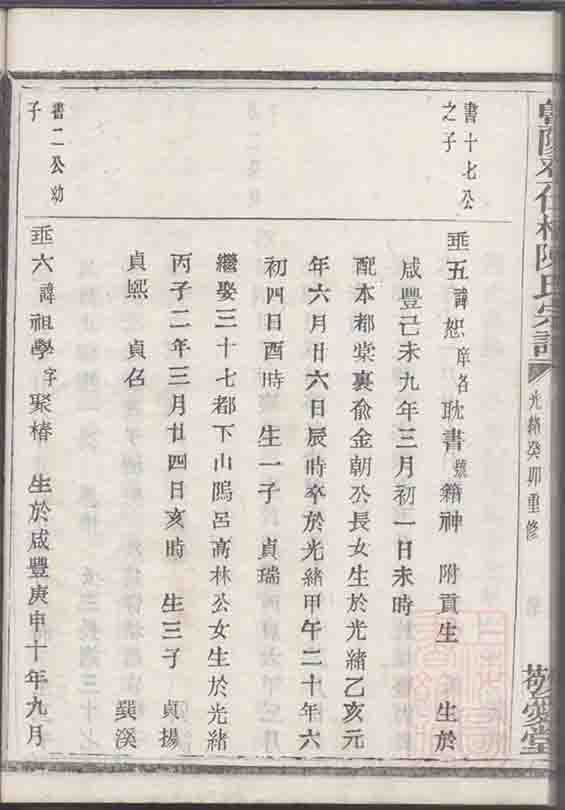 陳氏宗譜
光緒癸卯重修
敬愛堂
書十七公
之子
垂五諱恕庠名耽書號籍神 附貢生 生於
咸豐己未九年三月初一日未時
配本都棠裏俞金朝公長女生於光緒乙亥元
年六月廿六日辰時卒於光緒甲午二十年六
初四日酉時 生一子 貞瑞
繼娶三十七都下山隝呂高林公女生於光緒
丙子二年三月廿四日亥時 生三子 貞揚
貞熙 貞召 巽溪
書二公幼
子
垂六諱祖學字聚椿 生於咸豐庚申十年九月